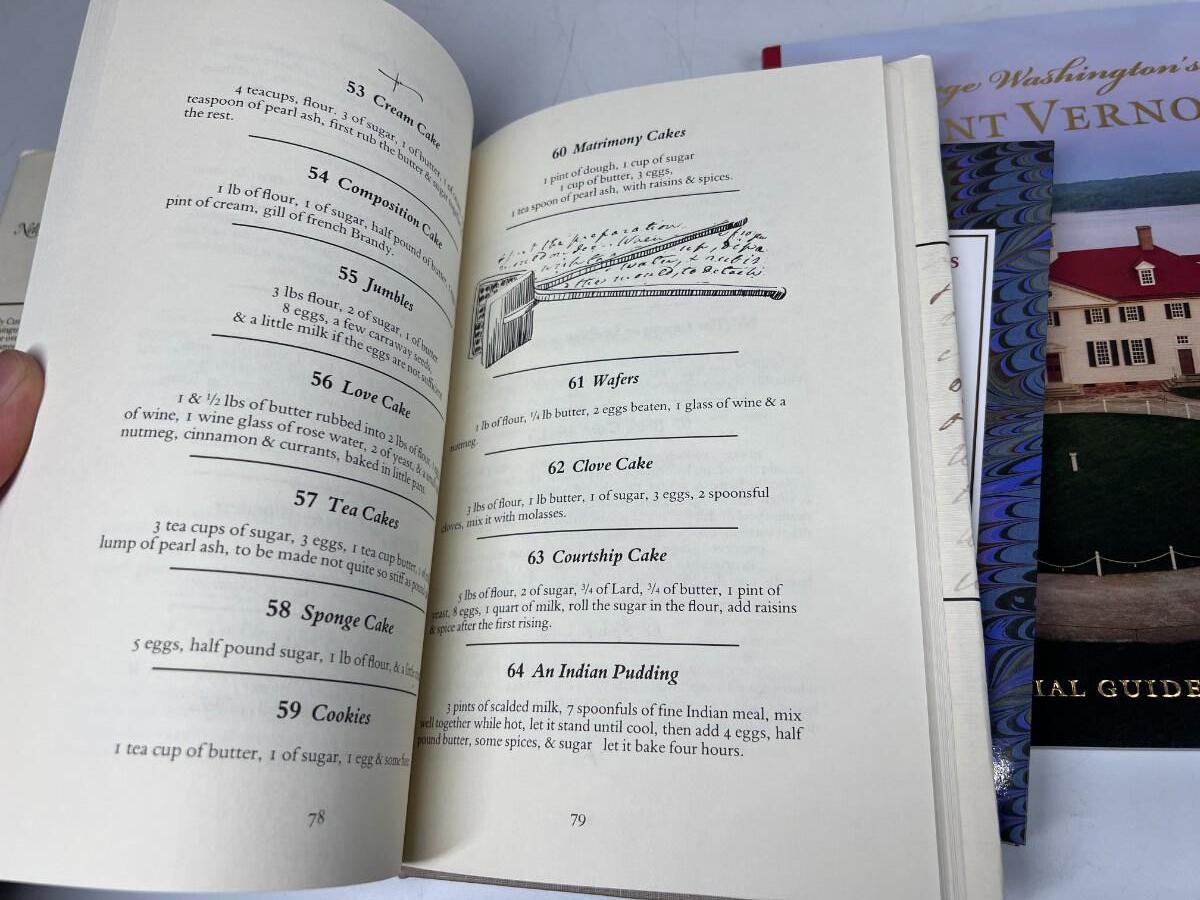 53 Cream Cake
4 teacups, flour, 3 of sugar, 1 of butter, 1 of
teaspoon of pearl ash, first rub the butter & sugar
the rest.
54 Composition Cake
1 lb of flour, 1 of sugar, half pound of butter,
pint of cream, gill of french Brandy.
55 Jumbles
3 lbs flour, 2 of sugar, 1 of butter
8 eggs, a few carraway seeds,
& a little milk if the eggs are not sufficient.
56 Love Cake
1 & ½ lbs of butter rubbed into 2 lbs of flour,
of wine, 1 wine glass of rose water, 2 of yeast, &
nutmeg, cinnamon & currants, baked in little pans.
57 Tea Cakes
3 tea cups of sugar, 3 eggs, 1 tea cup butter, 1 of
lump of pearl ash, to be made not quite so stiff as pound
58 Sponge Cake
5 eggs, half pound sugar, 1 lb of flour, & a little
59 Cookies
1 tea cup of butter, 1 of sugar, 1 egg & some
78
60 Matrimony Cakes
1 pint of dough, 1 cup of sugar
1 cup of butter, 3 eggs,
1 tea spoon of pearl ash, with raisins & spices.
the preparation
61 Wafers
1 lb of flour, ¼ lb butter, 2 eggs beaten, 1 glass of wine & a
nutmeg.
62 Clove Cake
3 lbs of flour, 1 lb butter, 1 of sugar, 3 eggs, 2 spoonsful
cloves, mix it with molasses.
63 Courtship Cake
5 lbs of flour, 2 of sugar, ¾ of Lard, ¾ of butter, 1 pint of
yeast, 8 eggs, 1 quart of milk, roll the sugar in the flour, add raisins
& spice after the first rising.
64 An Indian Pudding
3 pints of scalded milk, 7 spoonfuls of fine Indian meal, mix
well together while hot, let it stand until cool, then add 4 eggs, half
pound butter, some spices, & sugar let it bake four hours.
79
ge Washington's
NT VERNO
IAL GUIDE